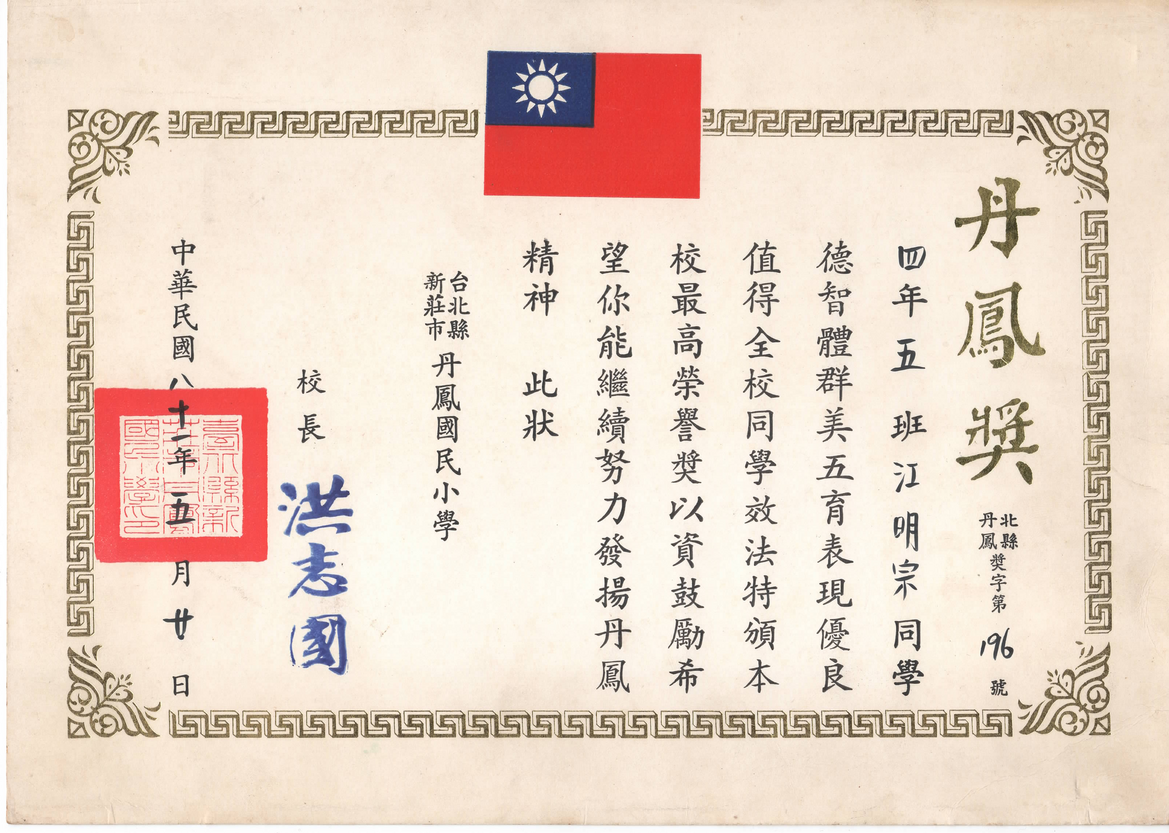 丹鳳獎
北縣
丹鳳
獎字第196號
四年五班江明宗同學
德智體群美五育表現優良
值得全校同學效法特頒本
校最高榮譽獎以資鼓勵希
望你能繼續努力發揚丹鳳
精神 此狀
台北縣
新莊市
丹鳳國民小學
校長 洪志國
中華民國八十一年五月廿日